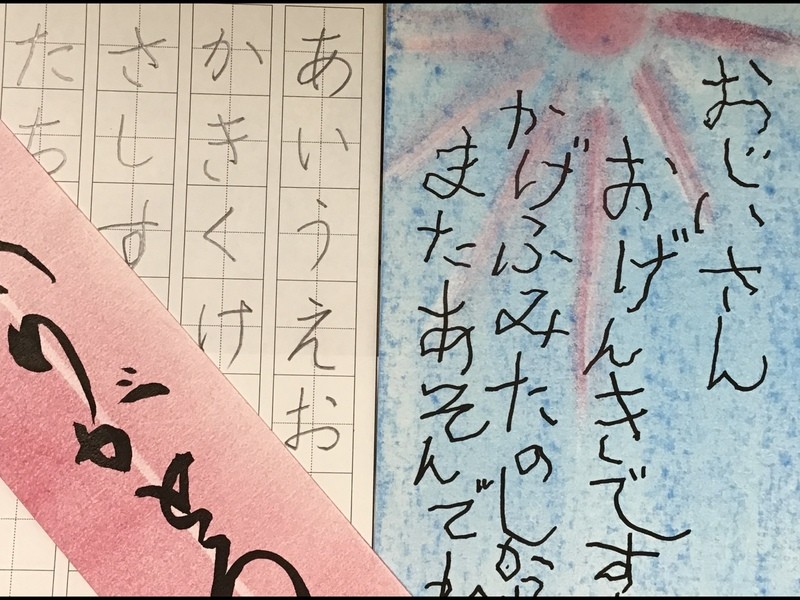 おじいさん
おげんきです
かげふみたのしか
またあそんでね
あいうえお
かきくけ
さしす
たち